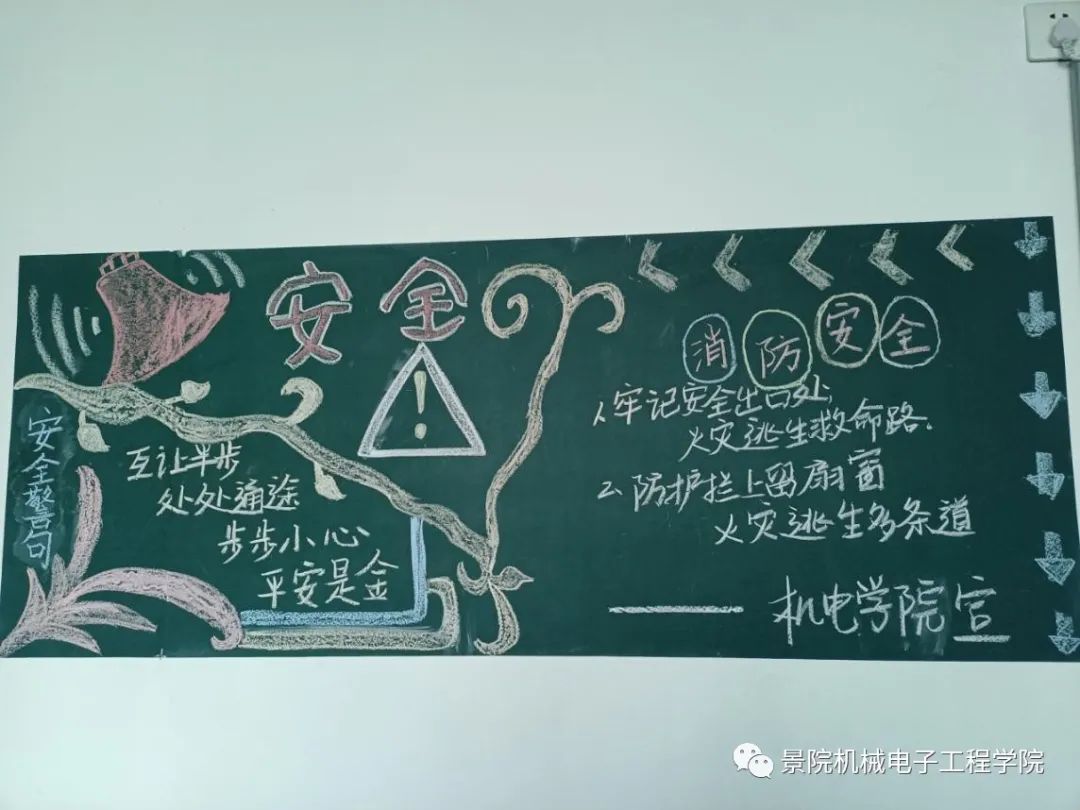 安全
!
安全警句
互让半步
处处通途
步步小心
平安是金
消防安全
1、牢记安全出口处,
火灾逃生救命路.
2、防护拦上留扇窗
火灾逃生多条道
—— 机电学院宫
景院机械电子工程学院